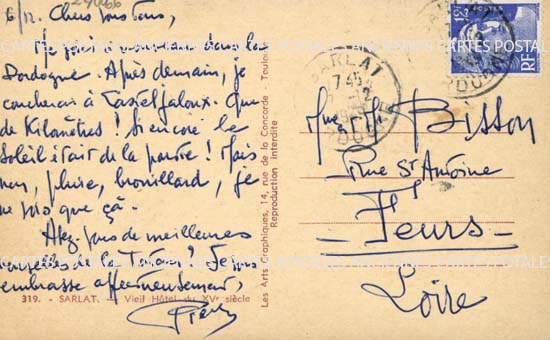 6/12. Chers vous tous,
Je suis
dans la
Dordogne. Après demain, je
coucherai à Casteljaloux. Que
de Kilomètres ! Si encore le
Soleil était de la partie ! Mais
non, pluie, brouillard, je
ne vois que ça.
de meilleures
nouvelles de la
? Je vous
embrasse affectueusement,
319. - SARLAT. - Vieil Hôtel du XVe siècle
Les Arts Graphiques, 14, rue de la Concorde - Toulouse
Reproduction interdite
SARLAT
7 45
12F
POSTES
RF
Bisson
Rue St Antoine
Feurs
Loire
CARTES POSTALES ANCIENNES